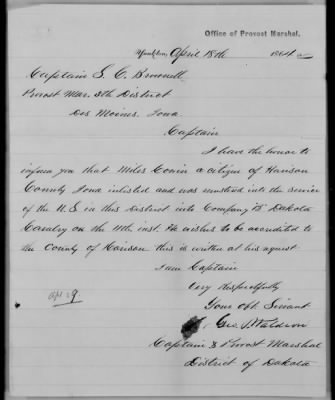 Office of Provost Marshal.
Yankton, April 18th 1864
Captain S. C. Brownell
Provost Mar. 5th District
Des Moines, Iowa
Captain
I have the honor to
inform you that Miles a citizen of Harison
County Iowa inlisted and was mustered into the service
of the U.S. in this District into Company "B" Dakota
Cavalry on the 11th inst. He wishes to be accredited to
the County of Harison this is written at his request
I am Captain
Very Respectfully
Your Obt Sirvant
Geo. P. Waldron
Captain & Provost Marshal
District of Dakota